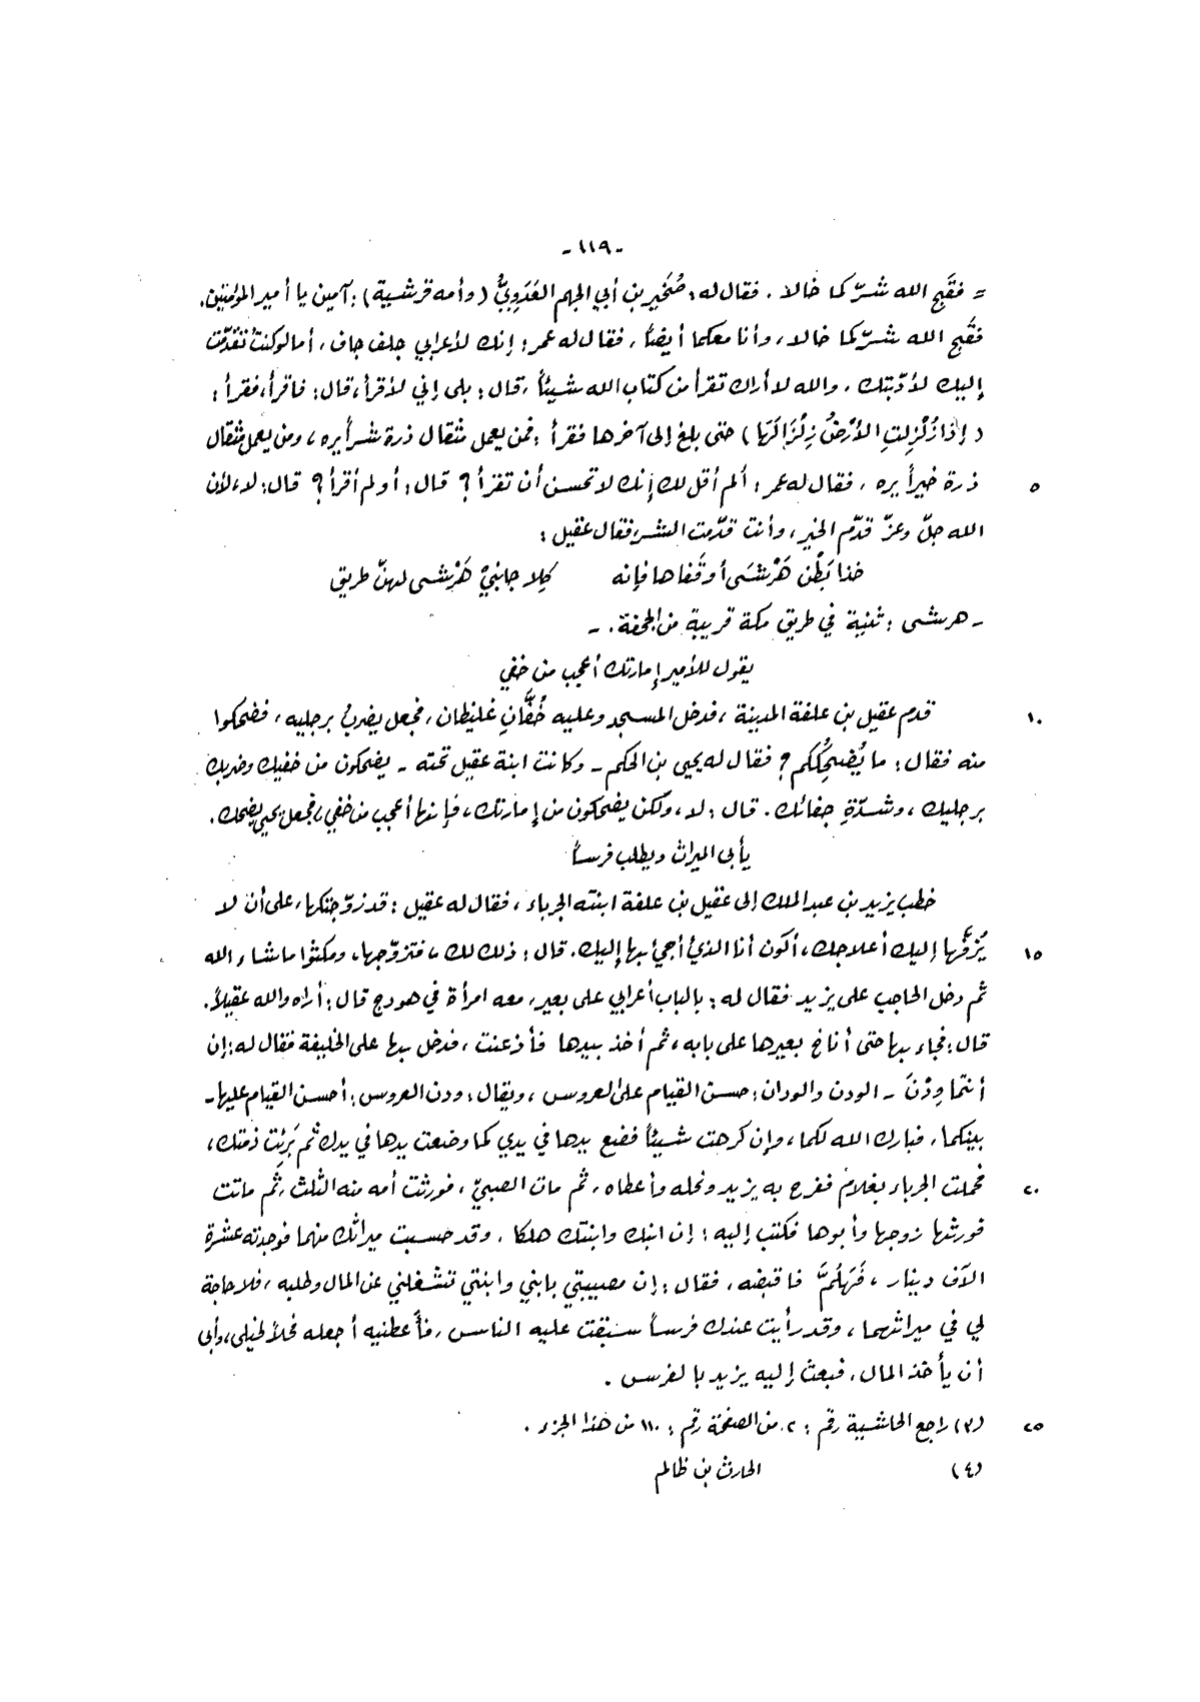 - ١١٩ -
= فقَبح الله شرّكما خالا . فقال له: صُخَير بن أبي الجهم العَدَوِيُّ (وأمه قرشية): آمين يا أمير المؤمنين.
فقُبح الله شرّكما خالا، وأنا معكما أيضاً . فقال له عمر: إنك لأعرابي جلف جاف، أما لو كنتُ تقدّمت
إليك لأدّبتك . والله لا أراك تقرأ من كتاب الله شيئاً . قال: بلى إني لأقرأ، قال: فاقرأ، فقرأ:
(إذا زُلْزِلتِ الأرضُ زِلْزَالَهَا) حتى بلغ إلى آخرها فقرأ: فمن يعمل مثقال ذرة شراً يره، ومن يعمل مثقال
٥ ذرة خيراً يره . فقال له عمر: ألم أقل لك إنك لا تحسن أن تقرأ؟ قال: أولم أقرأ؟ قال: لا، لأن
الله جلّ وعزّ قدّم الخير، وأنت قدّمت الشر، فقال عقيل:
خذا بَطْن هَرْشَى أو قَفاها فإنه كِلا جانبيْ هَرْشى لهنّ طريق
- هرشى: ثنية في طريق مكة قريبة من الجحفة. -
يقول للأمير إمارتك أعجب من خفي
١٠ قدم عقيل بن علفة المدينة، فدخل المسجد وعليه خُفَّانِ غليظان، فجعل يضربُ برجليه، فضحكوا
منه فقال: ما يُضحِكُكم؟ فقال له يحيى بن الحكم - وكانت ابنة عقيل تحته - يضحكون من خفيك وضربك
برجليك، وشدّةِ جفائك. قال: لا، ولكن يضحكون من إمارتك، فإنها أعجب من خفي، فجعل يحيى يضحك.
يأبى الميراث ويطلب فرساً
خطب يزيد بن عبد الملك إلى عقيل بن علفة ابنته الجرباء، فقال له عقيل: قد زوّجتكها، على أن لا
١٥ يُزفَّها إليك أعلاجك، أكون أنا الذي أجيئ بها إليك. قال: ذلك لك، فتزوّجها، ومكثوا ما شاء الله
ثم دخل الحاجب على يزيد فقال له: بالباب أعرابي على بعير، معه امرأة في هودج قال: أراه والله عقيلاً.
قال: فجاء بها حتى أناخ بعيرها على بابه، ثم أخذ بيدها فأذعنت، فدخل بها على الخليفة فقال له: إن
أنتما وِدْنَ - الودن والودان: حسن القيام على العروس، ويقال: ودن العروس: أحسن القيام عليها -
بينكما، فبارك الله لكما، وإن كرهت شيئاً فضع يدها في يدي كما وضعت يدها في يدك ثم بَرِئت ذمتك،
٢٠ فحملت الجرباء بغلام ففرح به يزيد ونحله وأعطاه، ثم مات الصبيّ، فورثت أمه منه الثلث، ثم ماتت
فورثها زوجها وأبوها فكتب إليه: إن ابنك وابنتك هلكا، وقد حسبت ميراثك منهما فوجدته عشرة
الآف دينار، فَهَلُمَّ فاقبضه، فقال: إن مصيبتي بابني وابنتي تشغلني عن المال وطلبه، فلا حاجة
لي في ميراثهما، وقد رأيت عندك فرساً سبقت عليه الناس، فأَعطنيه أجعله فحلاً لخيلي، وأبى
أن يأخذ المال، فبعث إليه يزيد بالفرس .
٢٥ (٣) راجع الحاشية رقم: ٢ من الصفحة رقم: ١١٠ من هذا الجزء .
(٤) الحارث بن ظالم